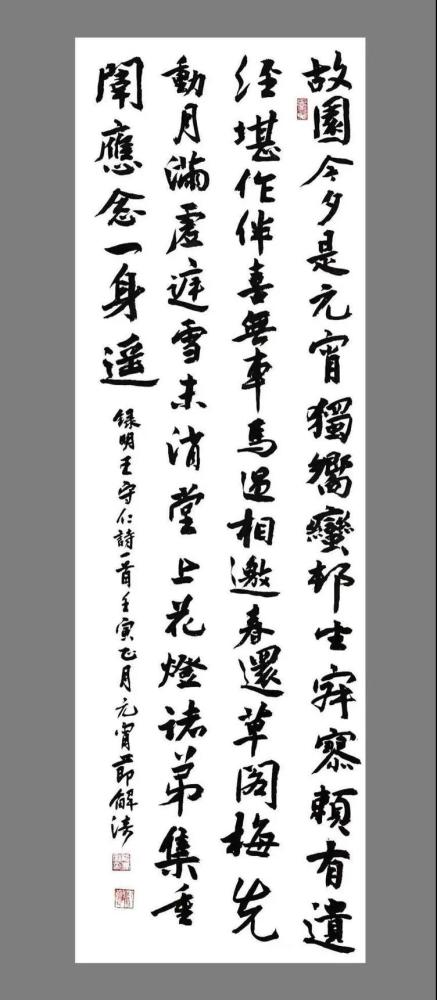 故園今夕是元宵獨嚮蠻邨坐寂寥賴有遺
經堪作伴喜無車馬過相邀春還草閣梅先
動月滿虛庭雪未消堂上花燈諸弟集重
闈應念一身遙
録明王守仁詩一首壬寅正月元宵節解